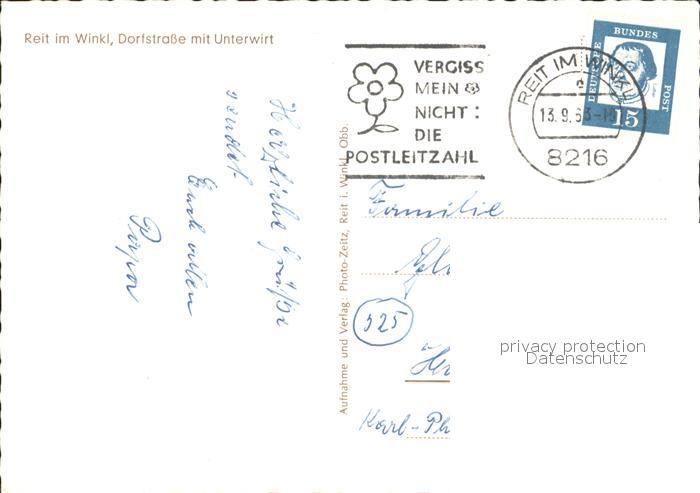 Reit im Winkl, Dorfstraße mit Unterwirt
VERGISS
MEIN
NICHT:
DIE
POSTLEITZAHL
REIT IM WINKL
13.9.63-18
8216
DEUTSCHE
BUNDES
POST
15
Herzliche Grüße
sendet
Euch allen
Papa
Aufnahme und Verlag: Photo-Zeitz, Reit i. Winkl, Obb.
Familie
325
Her
Karl-Ph
privacy protection
Datenschutz